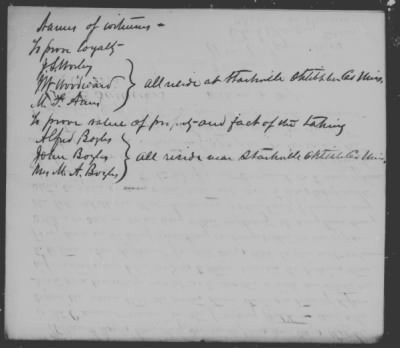 Names of witnesses -
To prove loyalty -
J S Worley
Wm Woodward } all reside at Starkville Oktibbeha Co Miss,
M. F.
To prove value of property and fact of the taking
Alfred Boyles
John Boyles } all reside near Starkville Oktibbeha Co Miss,
Mrs M. A. Boyles